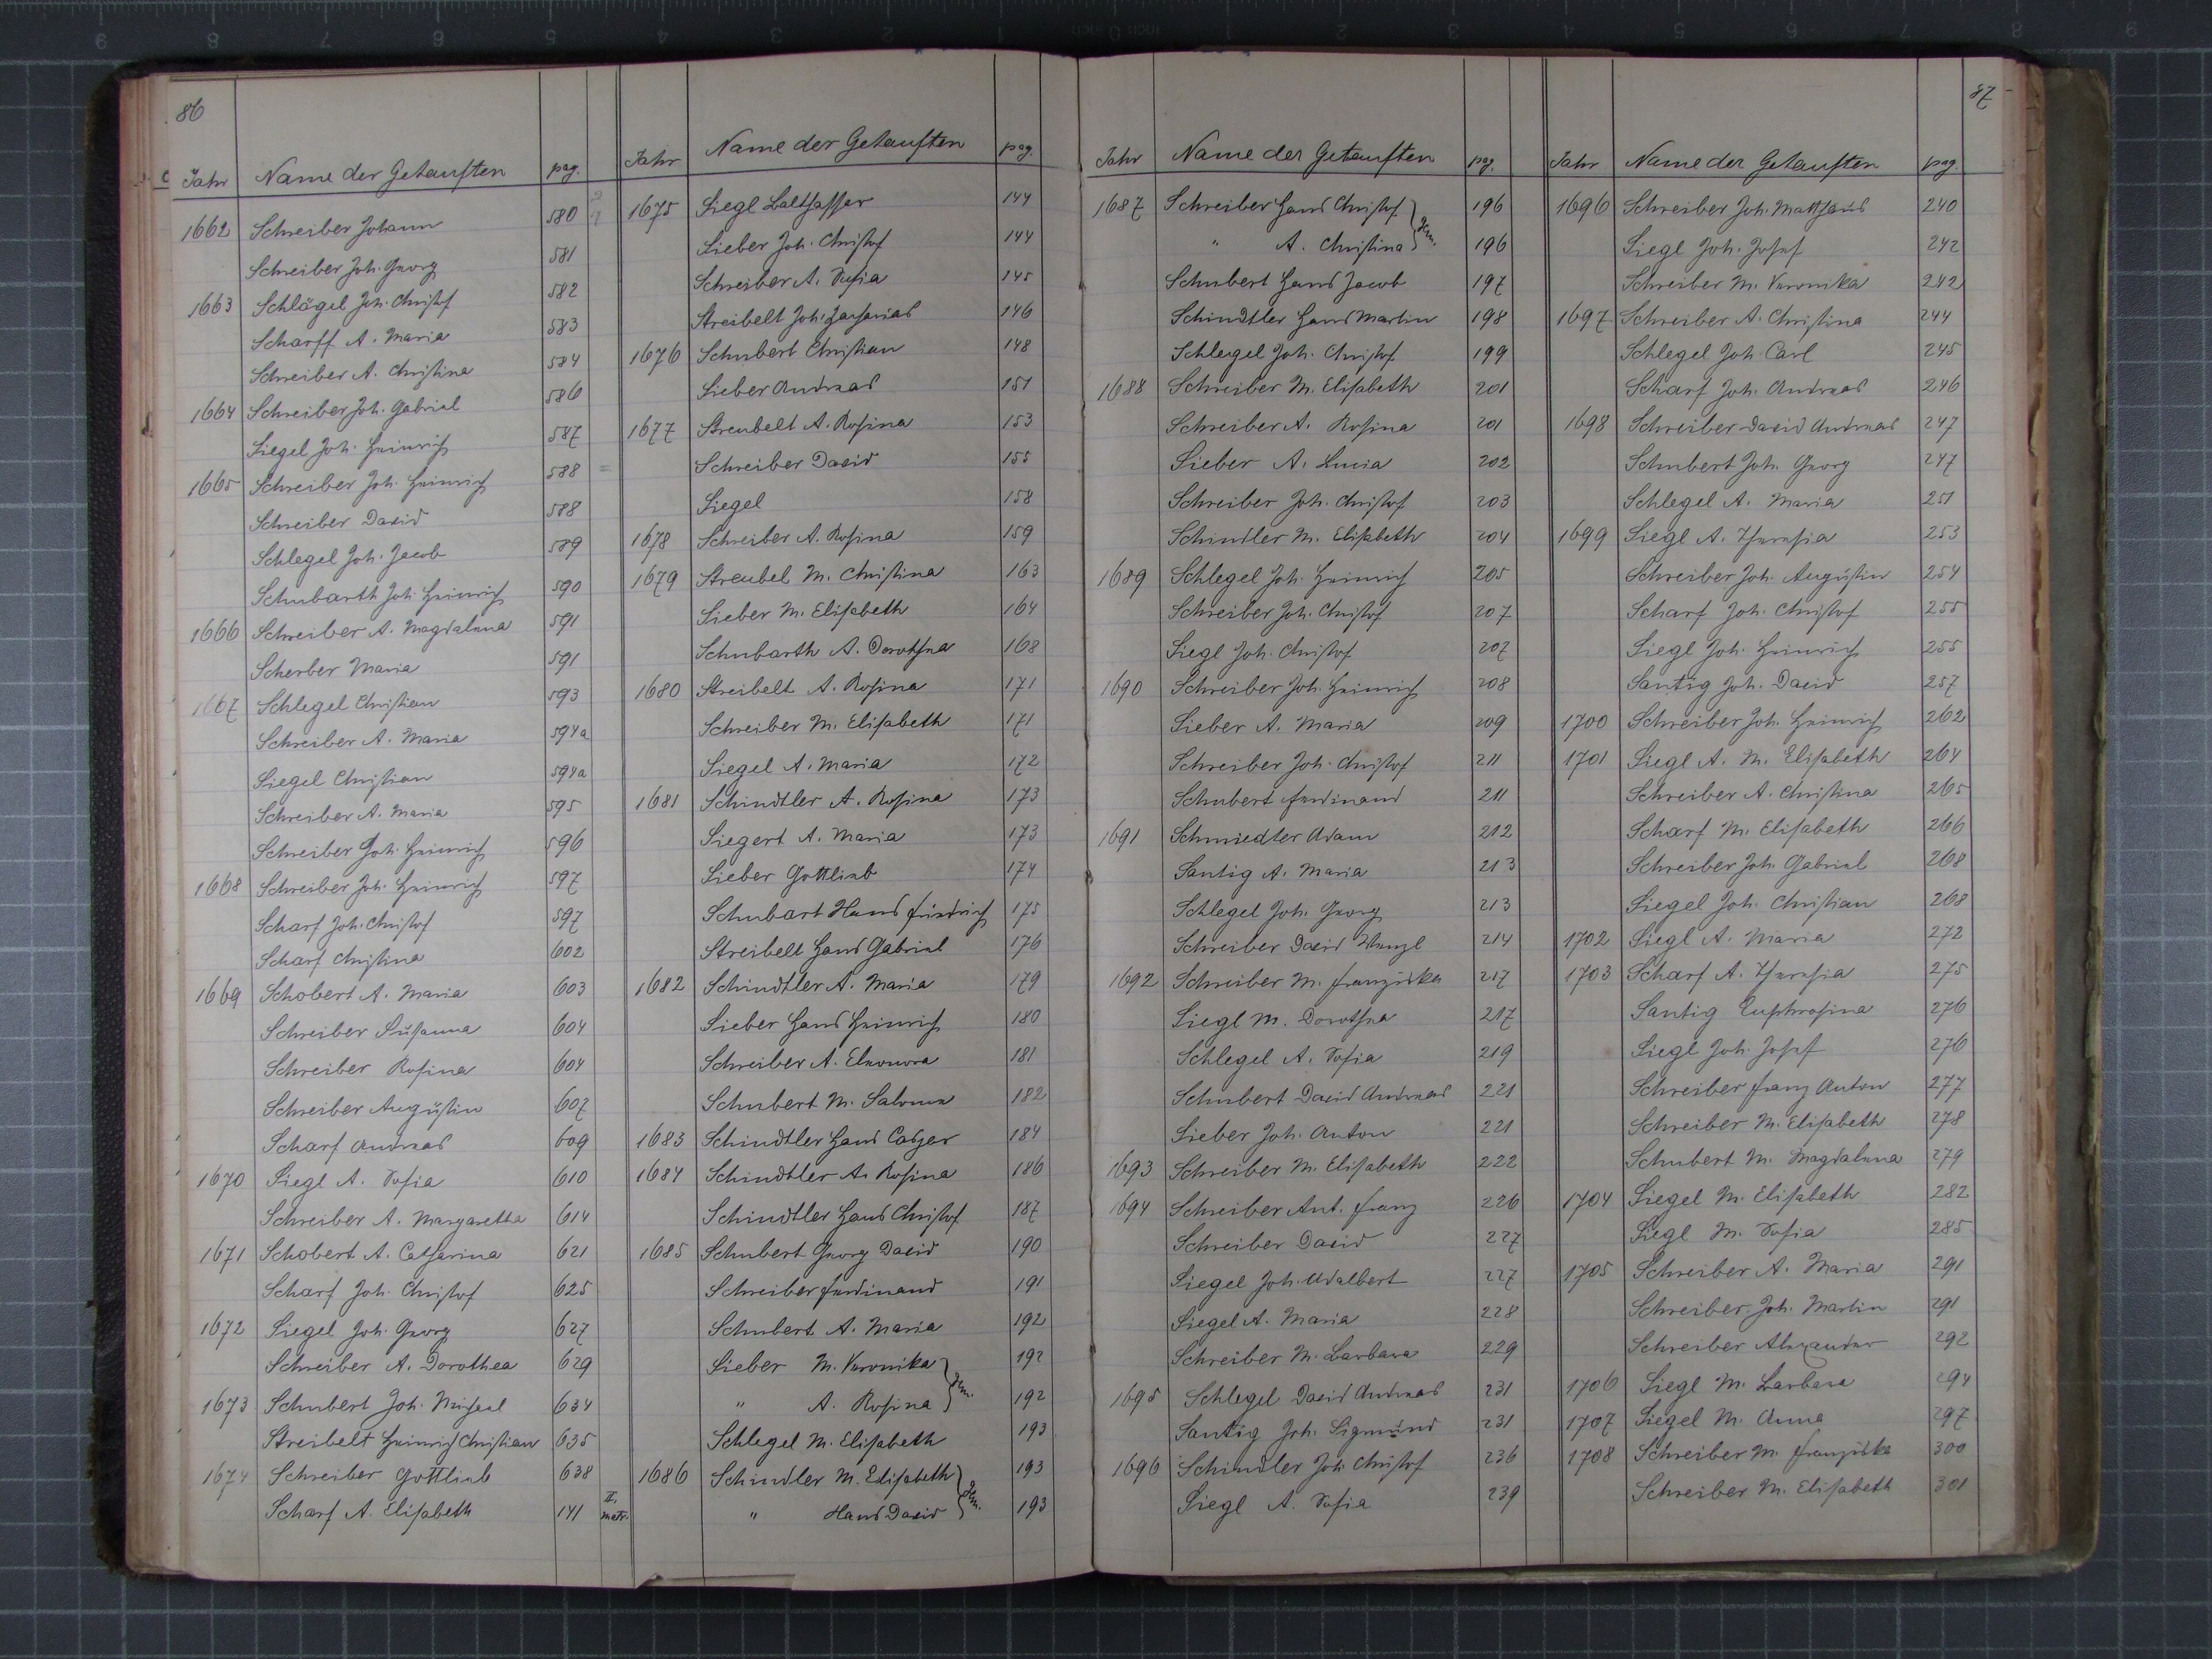 86
Jahr Name der Getauften pag.
1662 Schreiber Johann 580
Schreiber Joh. Georg 581
1663 Schlägel Joh. Christof 582
Scharff A. Maria 583
Schreiber A. Christina 584
1664 Schreiber Joh. Gabriel 586
Siegel Joh. Heinrich 587
1665 Schreiber Joh. Heinrich 588
Schreiber David 588
Schlegel Joh. Jacob 589
Schubarth Joh. Heinrich 590
1666 Schreiber A. Magdalena 591
Scherber Maria 591
1667 Schlegel Christian 593
Schreiber A. Maria 594a
Siegel Christian 594a
Schreiber A. Maria 595
Schreiber Joh. Heinrich 596
1668 Schreiber Joh. Heinrich 597
Scharf Joh. Christof 597
Scharf Christina 602
1669 Schobert A. Maria 603
Schreiber Susanna 604
Schreiber Rosina 604
Schreiber Augustin 607
Scharf Andreas 609
1670 Siegl A. Sofia 610
Schreiber A. Margaretha 614
1671 Schobert A. Catharina 621
Scharf Joh. Christof 625
1672 Siegel Joh. Georg 627
Schreiber A. Dorothea 629
1673 Schubert Joh. Michael 634
Streibelt Heinrich Christian 635
1674 Schreiber Gottlieb 638
Scharf A. Elisabeth 141 II. matr.
Jahr Name der Getauften pag.
1675 Siegl Balthasser 144
Sieber Joh. Christof 144
Schreiber A. Sofia 145
Streibelt Joh. Zacharias 146
1676 Schubert Christian 148
Sieber Andreas 151
1677 Streubelt A. Rosina 153
Schreiber David 155
Siegel 158
1678 Schreiber A. Rosina 159
1679 Streubel M. Christina 163
Sieber M. Elisabeth 164
Schubarth A. Dorothea 168
1680 Streibelt A. Rosina 171
Schreiber M. Elisabeth 171
Siegel A. Maria 172
1681 Schindtler A. Rosina 173
Siegert A. Maria 173
Sieber Gottlieb 174
Schubart Hans Friedrich 175
Streibelt Hans Gabriel 176
1682 Schindtler A. Maria 179
Sieber Hans Heinrich 180
Schreiber A. Eleonora 181
Schubert M. Salomea 182
1683 Schindtler Hans Casper 184
1684 Schindtler A. Rosina 186
Schindtler Hans Christof 187
1685 Schubert Georg David 190
Schreiber Ferdinand 191
Schubert A. Maria 192
Sieber M. Veronika } gem. 192
" A. Rosina } 192
Schlegel M. Elisabeth 193
1686 Schindler M. Elisabeth } gem. 193
" Hans David } 193
87
Jahr Name der Getauften pag.
1687 Schreiber Hans Christof } gem. 196
" A. Christina } 196
Schubert Hans Jacob 197
Schindtler Hans Martin 198
Schlegel Joh. Christof 199
1688 Schreiber M. Elisabeth 201
Schreiber A. Rosina 201
Sieber A. Lucia 202
Schreiber Joh. Christof 203
Schindler M. Elisabeth 204
1689 Schlegel Joh. Heinrich 205
Schreiber Joh. Christof 207
Siegl Joh. Christof 207
1690 Schreiber Joh. Heinrich 208
Sieber A. Maria 209
Schreiber Joh. Christof 211
Schubert Ferdinand 211
1691 Schmiedter Adam 212
Santig A. Maria 213
Schlegel Joh. Georg 213
Schreiber David Wenzl 214
1692 Schreiber M. Franziska 217
Siegl M. Dorothea 217
Schlegel A. Sofia 219
Schubert David Andreas 221
Sieber Joh. Anton 221
1693 Schreiber M. Elisabeth 222
1694 Schreiber Ant. Franz 226
Schreiber David 227
Siegel Joh. Adalbert 227
Siegel A. Maria 228
Schreiber M. Barbara 229
1695 Schlegel David Andreas 231
Santig Joh. Sigmund 231
1696 Schindler Joh. Christof 236
Siegl A. Sofia 239
Jahr Name der Getauften pag.
1696 Schreiber Joh. Matthäus 240
Siegl Joh. Josef 242
Schreiber M. Veronika 242
1697 Schreiber A. Christina 244
Schlegel Joh. Carl 245
Scharf Joh. Andreas 246
1698 Schreiber David Andreas 247
Schubert Joh. Georg 247
Schlegel A. Maria 251
1699 Siegl A. Theresia 253
Schreiber Joh. Augustin 254
Scharf Joh. Christof 255
Siegl Joh. Heinrich 255
Santig Joh. David 257
1700 Schreiber Joh. Heinrich 262
1701 Siegl A. M. Elisabeth 264
Schreiber A. Christina 265
Scharf M. Elisabeth 266
Schreiber Joh. Gabriel 268
Siegel Joh. Christian 268
1702 Siegl A. Maria 272
1703 Scharf A. Theresia 275
Santig Euphrosina 276
Siegl Joh. Josef 276
Schreiber Franz Anton 277
Schreiber M. Elisabeth 278
Schubert M. Magdalena 279
1704 Siegel M. Elisabeth 282
Siegl M. Sofia 285
1705 Schreiber A. Maria 291
Schreiber Joh. Martin 291
Schreiber Alexander 292
1706 Siegl M. Barbara 294
1707 Siegel M. Anna 297
1708 Schreiber M. Franziska 300
Schreiber M. Elisabeth 301